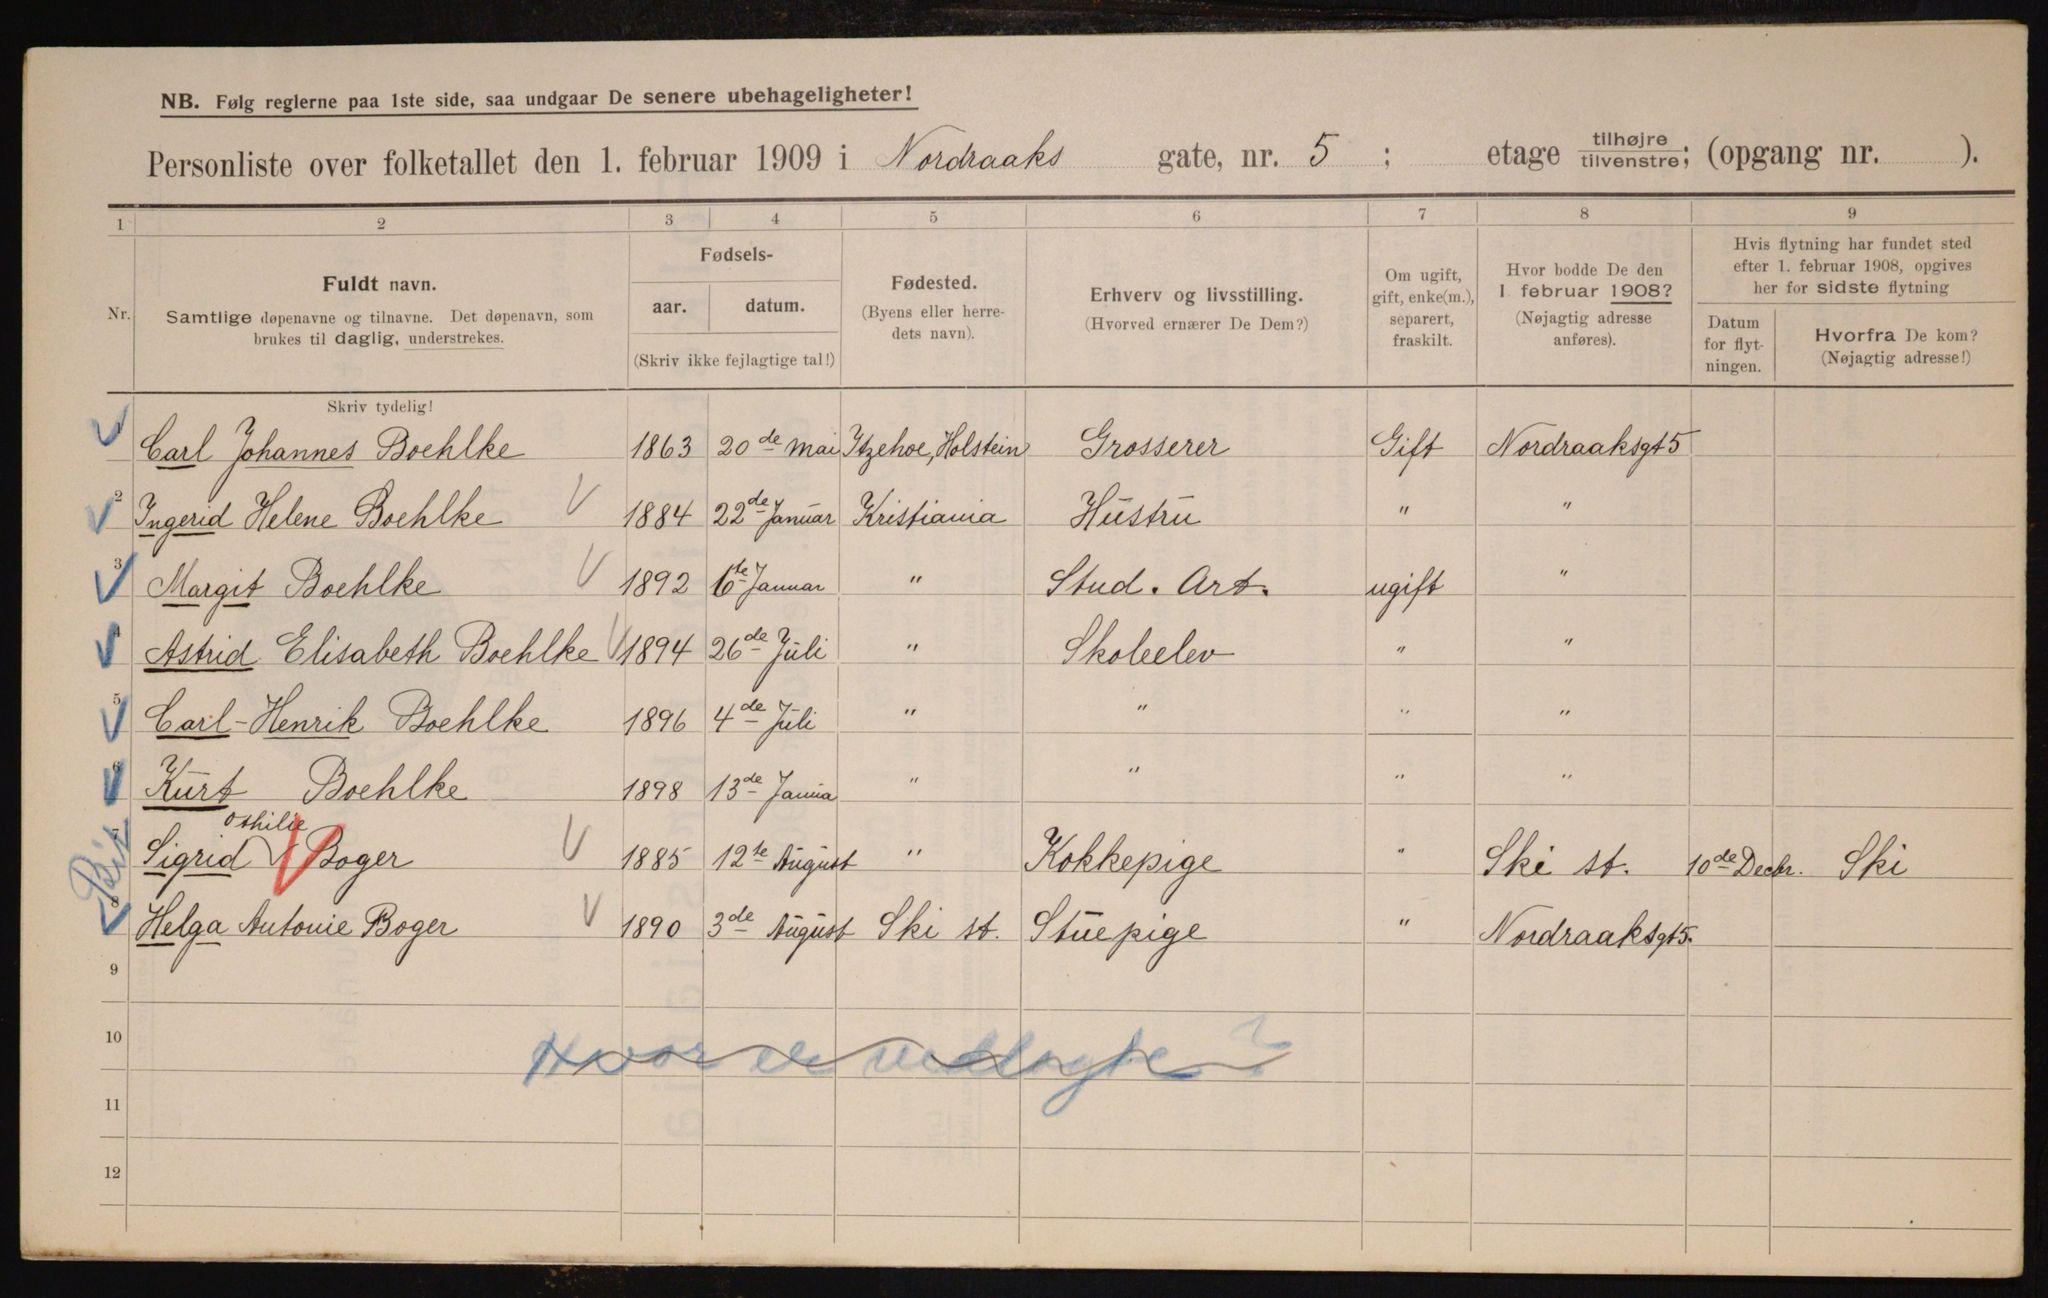 NB. Følg reglerne paa 1ste side, saa undgaar De senere ubehageligheter!
Personliste over folketallet den 1. februar 1909 i Nordraaks gate, nr. 5 ; etage tilhøjre tilvenstre; (opgang nr. ).
1 2 3 4 5 6 7 8 9
Nr.
Fuldt navn.
Samtlige døpenavne og tilnavne. Det døpenavn, som
brukes til daglig, understrekes.
Fødsels-
aar. datum.
(Skriv ikke fejlagtige tal!)
Fødested.
(Byens eller herre-
dets navn).
Erhverv og livsstilling.
(Hvorved ernærer De Dem?)
Om ugift,
gift, enke(m.),
separert,
fraskilt.
Hvor bodde De den
1 februar 1908?
(Nøjagtig adresse
anføres).
Hvis flytning har fundet sted
efter 1. februar 1908, opgives
her for sidste flytning
Datum
for flyt-
ningen.
Hvorfra De kom?
(Nøjagtig adresse!)
Skriv tydelig!
1 Carl Johannes Boehlke 1863 20de Mai Itzehoe, Holstein Grosserer Gift Nordraaksgt 5
2 Ingerid Helene Boehlke 1884 22de Januar Kristiania Hustru " "
3 Margit Boehlke 1892 6te Januar " Stud. Art. ugift "
4 Astrid Elisabeth Boehlke 1894 26de Juli " Skoleelev " "
5 Carl-Henrik Boehlke 1896 4de Juli " " " "
6 Kurt Boehlke 1898 13de Janua " " " "
7 Sigrid Othilie Boger 1885 12te August " Kokkepige " Ski st. 10de Decbr. Ski
8 Helga Antonie Boger 1890 3de August Ski st. Stuepige " Nordraaksgt 5.
9
10
Hvor er vedlagte?
11
12